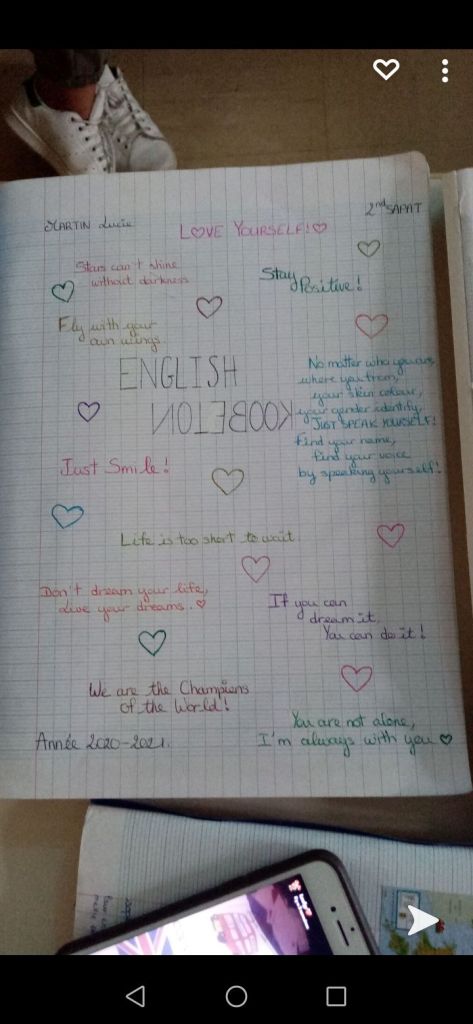 MARTIN Lucie
2nd SAPAT
LOVE YOURSELF!
Stars can't shine
without darkness
Stay
Positive!
Fly with your
own wings
ENGLISH
NOTEBOOK
No matter who you are,
where you from,
your skin colour,
your gender identify,
JUST SPEAK YOURSELF!
Find your name,
find your voice
by speaking yourself!
Just Smile!
Life is too short to wait
Don't dream your life,
Live your dreams.
If you can
dream it,
You can do it!
We are the Champions
of the World!
You are not alone,
I'm always with you
Année 2020-2021.